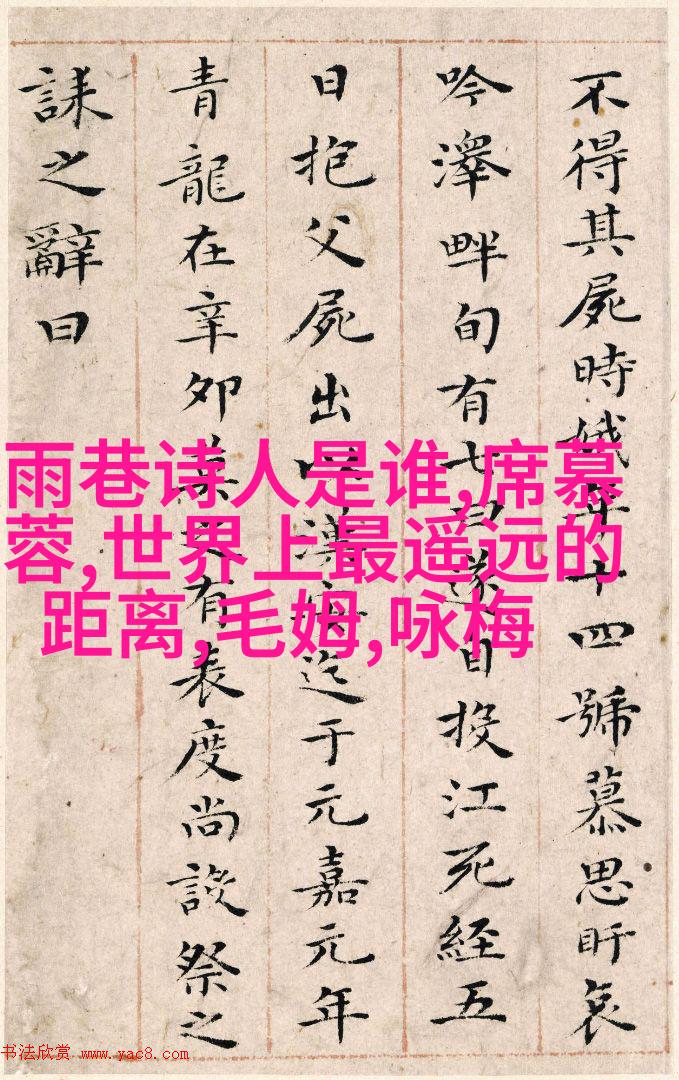 不得其屍時娥年十四號慕思盱哀
吟澤畔旬有七日遂自投江死經五
日抱父屍出以漢安迄于元嘉元年
青龍在辛卯莫之有表度尚設祭之
誄之辭曰
雨巷诗人是谁,席慕
蓉,世界上最遥远的
距离,毛姆,咏梅
书法欣赏 www.yac8.com